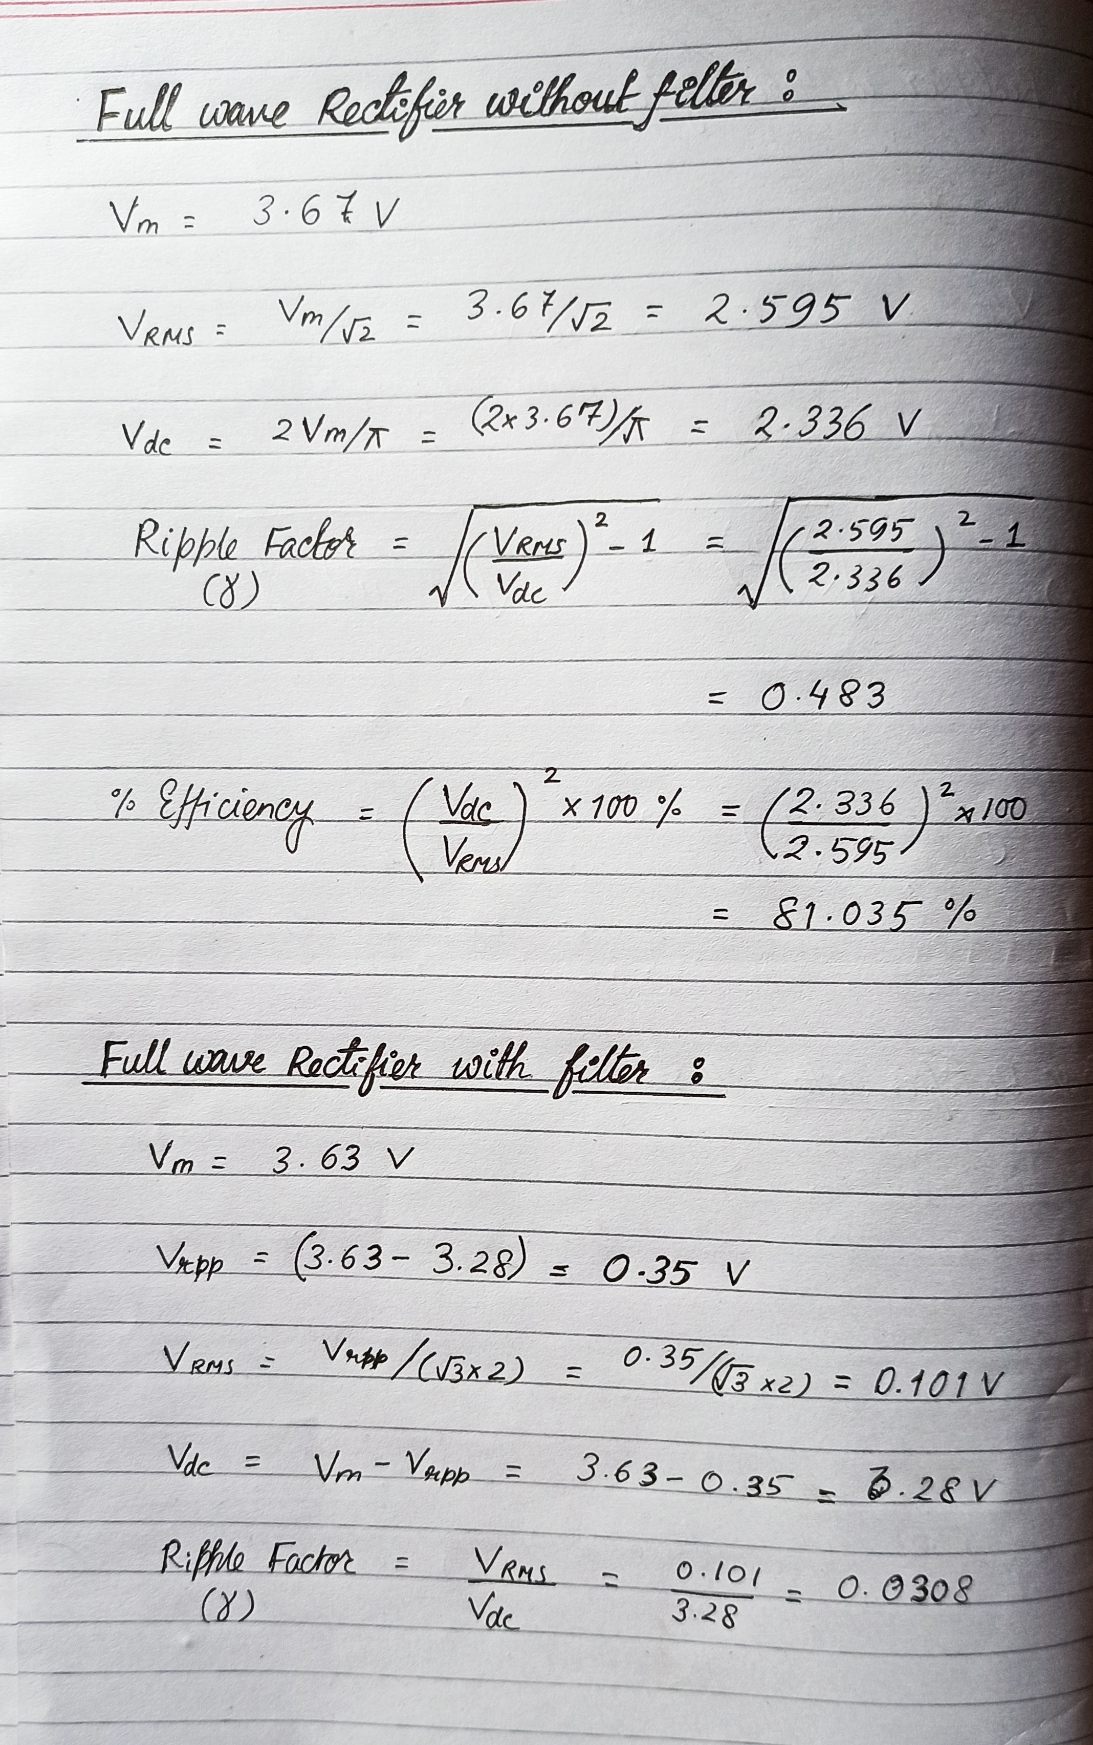 Full wave Rectifier without filter :
Vm = 3.67 V
VRMS = Vm/√2 = 3.67/√2 = 2.595 V
Vdc = 2Vm/π = (2x3.67)/π = 2.336 V
Ripple Factor (γ) = √((VRMS/Vdc)² - 1) = √((2.595/2.336)² - 1)
= 0.483
% Efficiency = (Vdc/VRMS)² x 100 % = (2.336/2.595)² x 100
= 81.035 %
Full wave Rectifier with filter :
Vm = 3.63 V
Vrpp = (3.63 - 3.28) = 0.35 V
VRMS = Vrpp/(√3x2) = 0.35/(√3x2) = 0.101 V
Vdc = Vm - Vrpp = 3.63 - 0.35 = 3.28 V
Ripple Factor (γ) = VRMS/Vdc = 0.101/3.28 = 0.0308